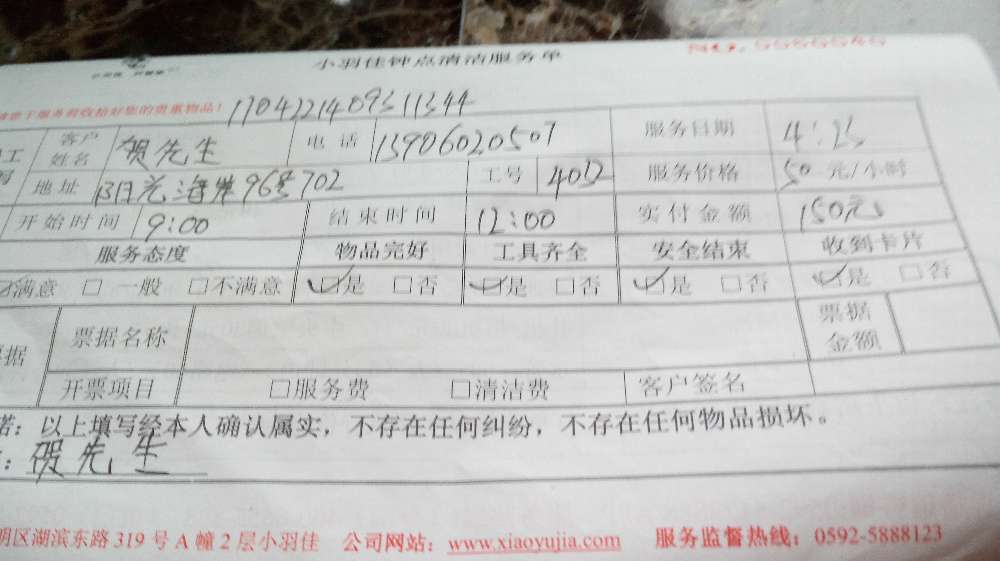 小羽佳钟点清洁服务单
服务前收拾好您的贵重物品! 1704221409311344
客户姓名 贺先生 电话 13906020507 服务日期 4:23
地址 96号702 工号 4032 服务价格 50元/小时
开始时间 9:00 结束时间 12:00 实付金额 150元
服务态度 物品完好 工具齐全 安全结束 收到卡片
☑满意 □一般 □不满意 ☑是 □否 ☑是 □否 ☑是 □否 ☑是 □否
票据名称 票据金额
开票项目 □服务费 □清洁费 客户签名
诺:以上填写经本人确认属实,不存在任何纠纷,不存在任何物品损坏。
:贺先生
明区湖滨东路 319 号 A 幢 2 层小羽佳 公司网站:www.xiaoyujia.com 服务监督热线:0592-5888123